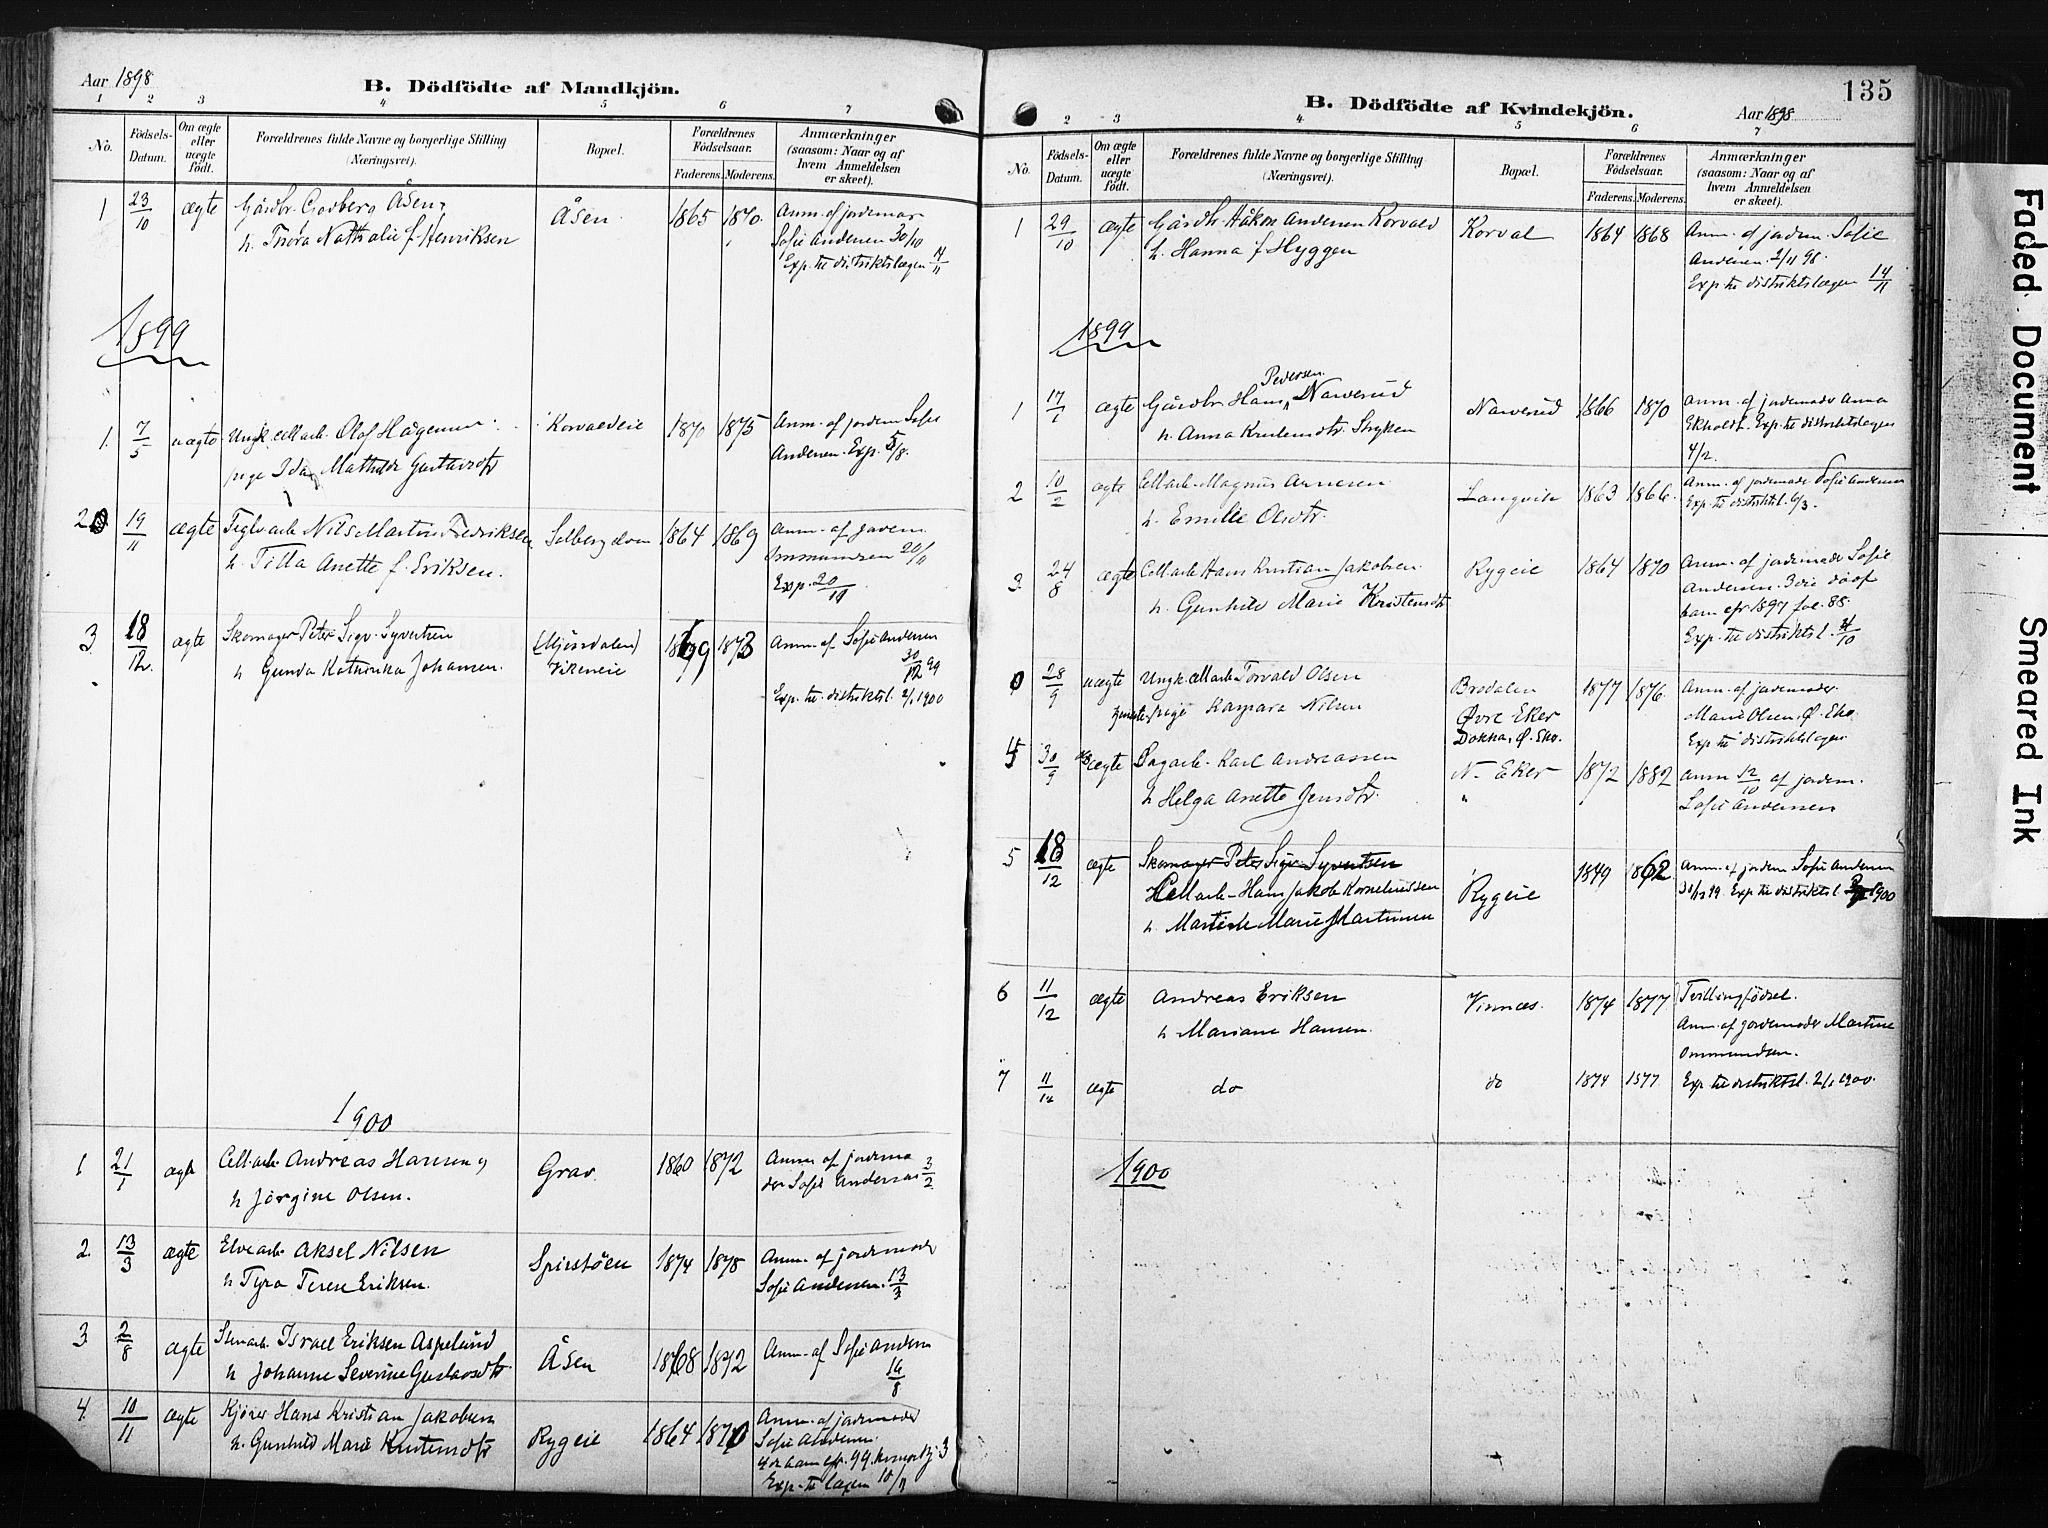 Aar 1898
B. Dödfödte af Mandkjön.
1 2 3 4 5 6 7
No.
Födsels-Datum.
Om ægte eller uægte födt.
Forældrenes fulde Navne og borgerlige Stilling (Næringsvei).
Bopæl.
Forældrenes Födselsaar.
Faderens. Moderens.
Anmærkninger (saasom: Naar og af hvem Anmeldelsen er skeet).
1 23/10 ægte Gårdbr. Godberg Åsen Åsen 1865 1870 Anm. af jordemor
h. Thora Nathalie f. Henriksen Sofie Andersen 30/10
Exp. til distriktslægen 14/11
1899
1. 7/5 uægte Ungk. Cellarb. Olof Hågensen Korvaldeie 1870 1875 Anm. af jordem Sofie
pige Ida Mathilde Gustavsdtr Andersen. Exp. 5/8.
2 19/11 ægte Teglv.arb Nils Martin Fredriksen Solbergelven 1864 1869 Anm. af jordem.
h. Tilla Anette f. Eriksen. Ommundsen 20/11
Exp. 20/11
3 18/12 ægte Skomager Peter Sigv. Syvertsen (Mjøndalen) 1869 1873 Anm. af Sofie Andersen
h Gunda Kathinka Johansen. Vikeneie 30/12 99
Exp. til distriktsl. 2/1 1900
1900
1 21/1 ægte Cell.arb. Andreas Hansen Grav. 1860 1872 Anm. af jordemo
h Jörgine Olsen. der Sofie Andersen 3/2
2. 13/3 ægte Elvearb. Aksel Nilsen Spirstöen 1874 1878 Anm. af jordemoder
h Tyra Terese Eriksen. Sofie Andersen. 13/3
3. 2/8 ægte Stenarb. Israel Eriksen Aspelund Åsen 1868 1872 Anm. af Sofie Andersen
h Johanne Severine Gustavsdtr. 16/8
4. 10/11 ægte Kjører Hans Kristian Jakobsen Rygeie 1864 1870 Anm. af jordemoder
h. Gunhild Marie Knutsensdtr Sofie Andersen.
Exp. til lægen 10/11
135
B. Dödfödte af Kvindekjön.
Aar 1898
2 3 4 5 6 7
No.
Födsels-Datum.
Om ægte eller uægte födt.
Forældrenes fulde Navne og borgerlige Stilling (Næringsvei).
Bopæl.
Forældrenes Födselsaar.
Faderens. Moderens.
Anmærkninger (saasom: Naar og af hvem Anmeldelsen er skeet).
1 29/10 ægte Gårdbr. Håkon Andersen Korvald Korval 1864 1868 Anm. af jordem. Sofie
h. Hanna f Hyggen Andersen 2/11 98.
Exp til distriktslægen 14/11
1899
1 17/1 ægte Gårdbr Hans Pedersen Narverud Narverud 1866 1870 Anm. af jordemoder Anna
h. Anna Knutensdtr. Stryken Ekholdt. Exp. til distriktslægen
4/2.
2 10/2 ægte Cell.arb. Magnus Arnesen Langvik 1863 1866. Anm. af jordemoder Sofie Andersen
h. Emilie Olsdtr. Exp. til distriktsl. 6/3.
3 24/8 ægte Cell.arb Hans Kristian Jakobsen Rygeie 1864 1870 Anm. af jordemoder Sofie
h. Gunhild Marie Kristensdtr Andersen. 3die dööf
barn efr 1897 fol. 88.
Exp. til distriktsl.
28/9 uægte Ungk. Cell.arb Torvald Olsen Brodalen 1877 1876. Anm. af jordemoder
pige Kaspara Nilsen Øvre Eker Marie Olsen, Ø. Eker
Dokka, Ø. Eker. Exp. til distriktslægen
4 30/9 ægte Dagarb. Karl Andreassen N. Eker 1872 1882 Anm 12/10 af jordem.
h Helga Anette Jensdtr. " Sofie Andersen
5 18/12 ægte Skomager Peter Sigv. Syvertsen
Cell.arb. Hans Jakob Korneliussen Rygeie 1849 1862 Anm. af jordem Sofie Andersen
h. Martine Marie Martinsen 30/12 99 Exp til distriktsl. 1900
6 11/12 ægte Andreas Eriksen Vinnæs. 1874 1877 Tvillingfödsel.
h Mariane Hansen. Anm. af jordemoder Martine
Ommundsen.
7 11/12 ægte do do 1874 1877 Exp til distriktsl. 2/1 1900.
1900
Faded Document
Smeared Ink